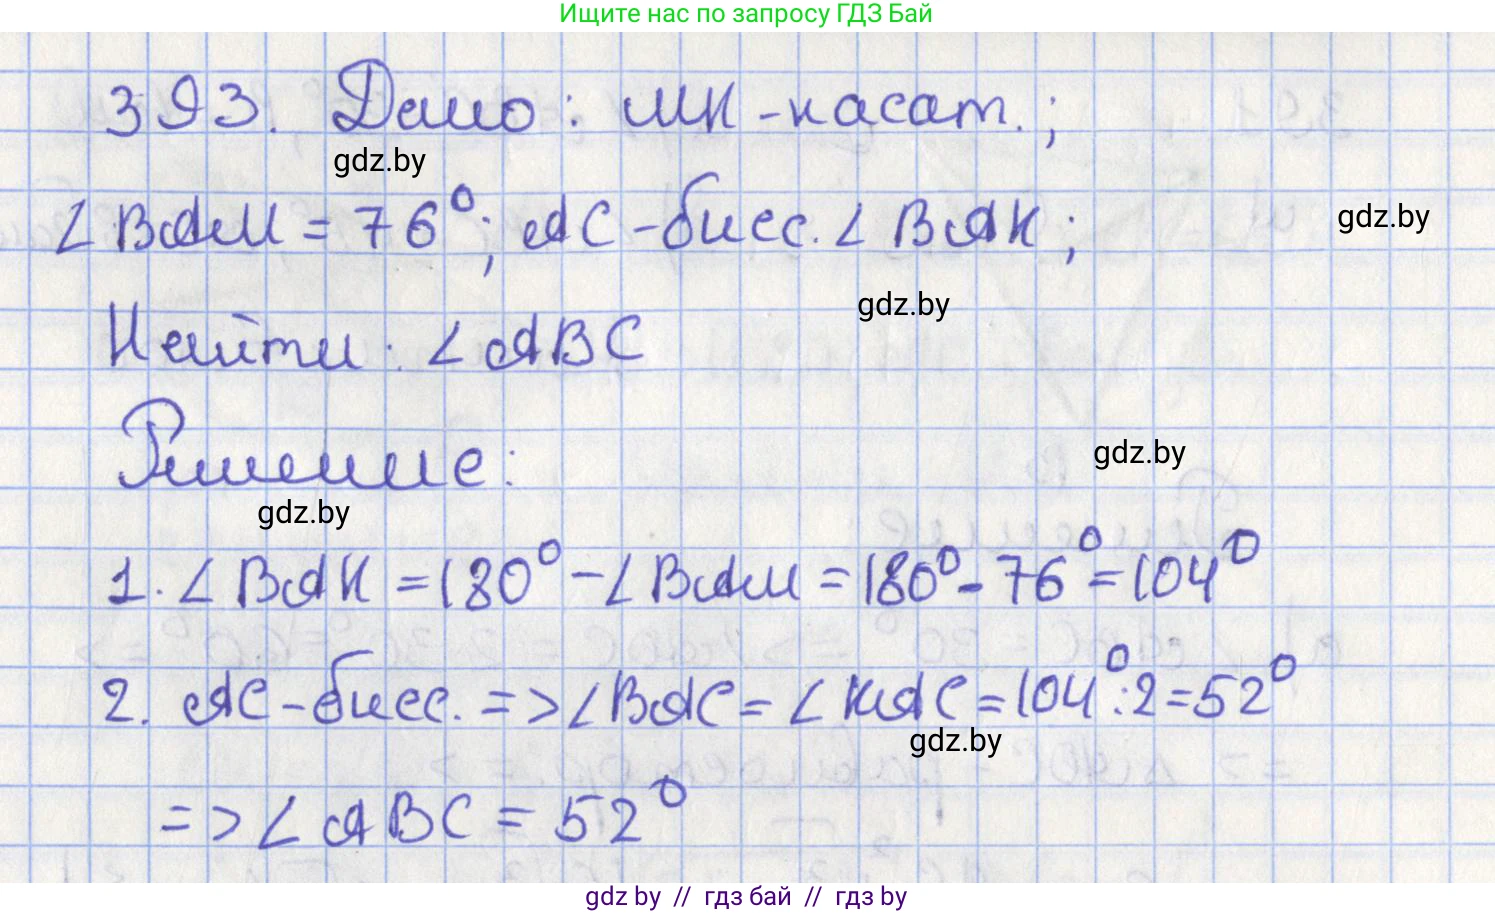 Ищите нас по запросу ГДЗ Бай
393. Дано: МК - касат.;
gdz.by
∠BAM = 76°; AC - бисс. ∠BAK;
gdz.by
gdz.by
Найти: ∠ABC
Решение:
gdz.by
gdz.by
1. ∠BAK = 180° - ∠BAM = 180° - 76° = 104°
2. AC - бисс. => ∠BAC = ∠KAC = 104° : 2 = 52°
gdz.by
=> ∠ABC = 52°
gdz.by // гдз бай // гдз by